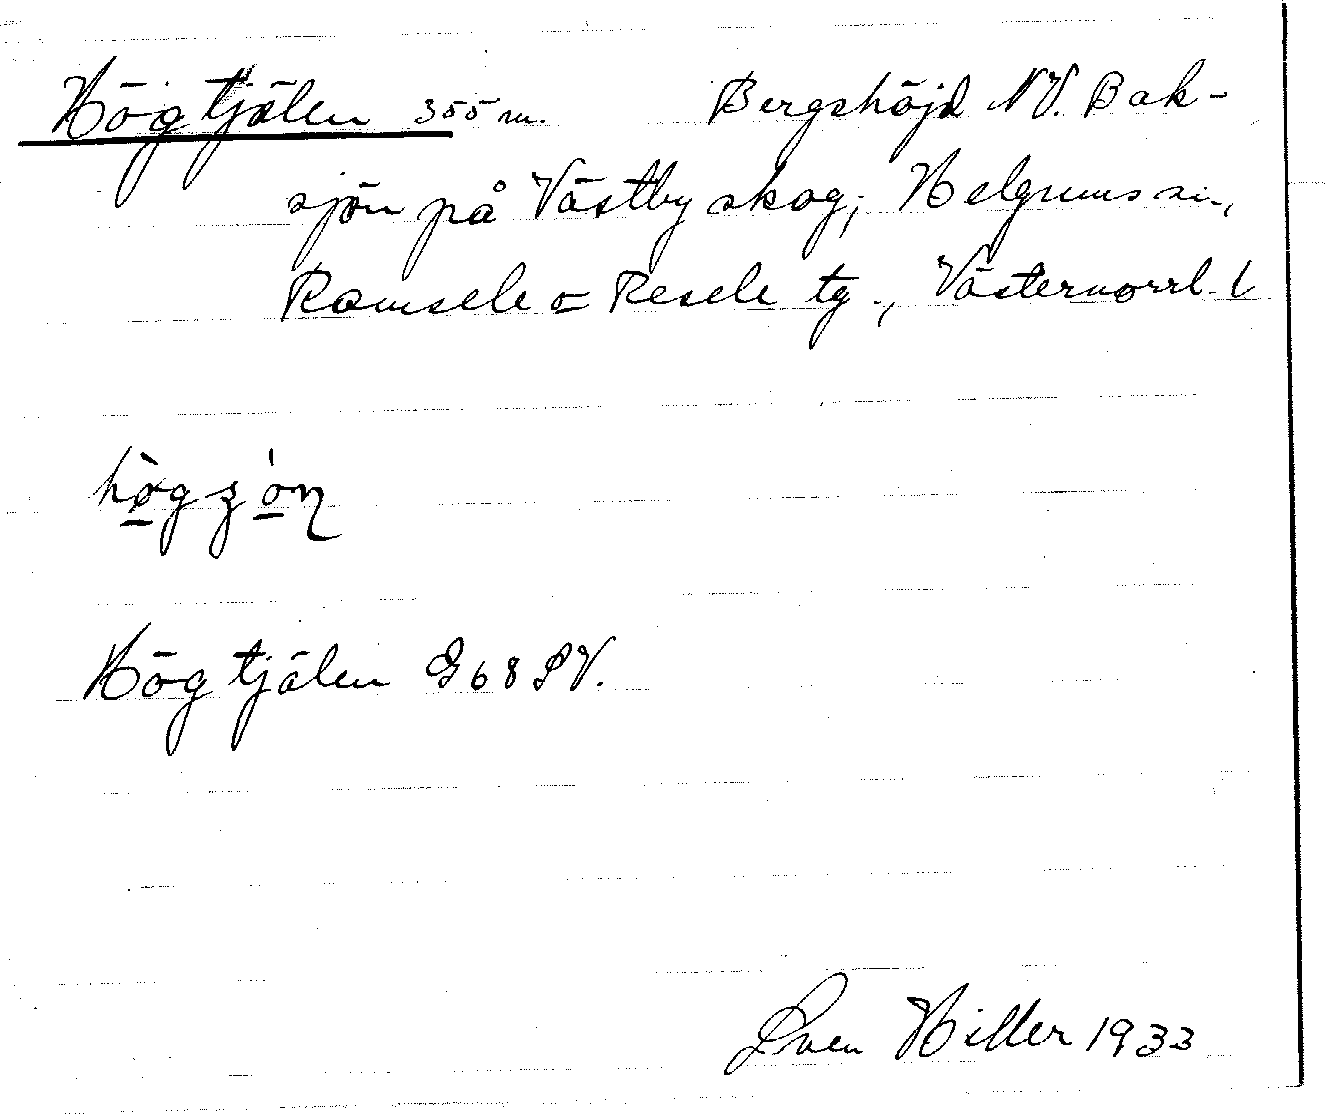 Högtjälen 355 m. Bergshöjd NV. Bak-
sjön på Västby skog, Helgums sn.,
Ramsele o Resele tg., Västernorrl. l
Högtjälen G68 SV.
Sven Hiller 1933